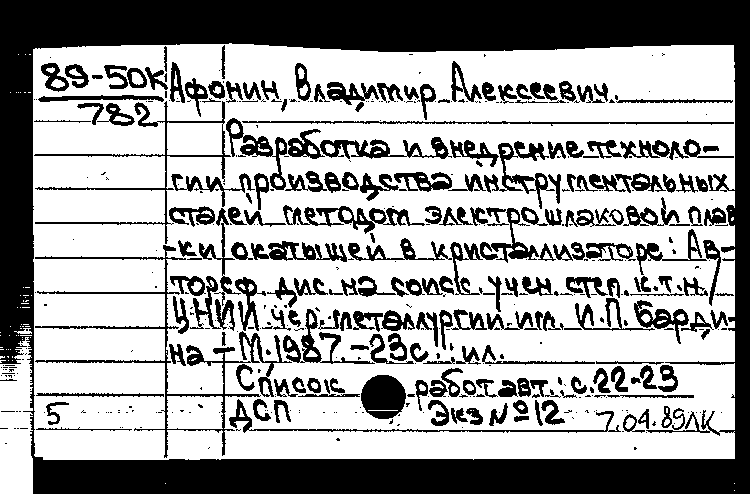 89-50К Афонин, Владимир Алексеевич.
782
Разработка и внедрение техноло-
гии производства инструментальных
сталей методом электрошлаковой плав
-ки окатышей в кристаллизаторе: Ав-
тореф. дис. на соиск. учен. степ. к.т.н./
ЦНИИ чер. металлургии им. И.П. Барди-
на. – М. 1987. – 23с.: ил.
Список работ авт.: с.22-23
5 ДСП Экз №12 7.04.89ЛК